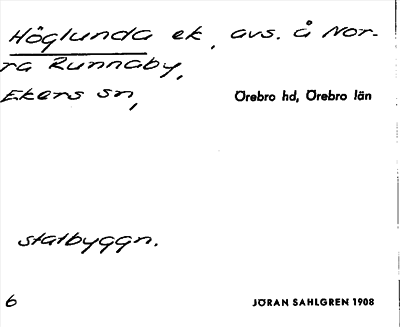 Höglunda ek, avs. å Nor-
ra Runnaby,
Ekers sn,
Örebro hd, Örebro län
statbyggn.
6
JÖRAN SAHLGREN 1908